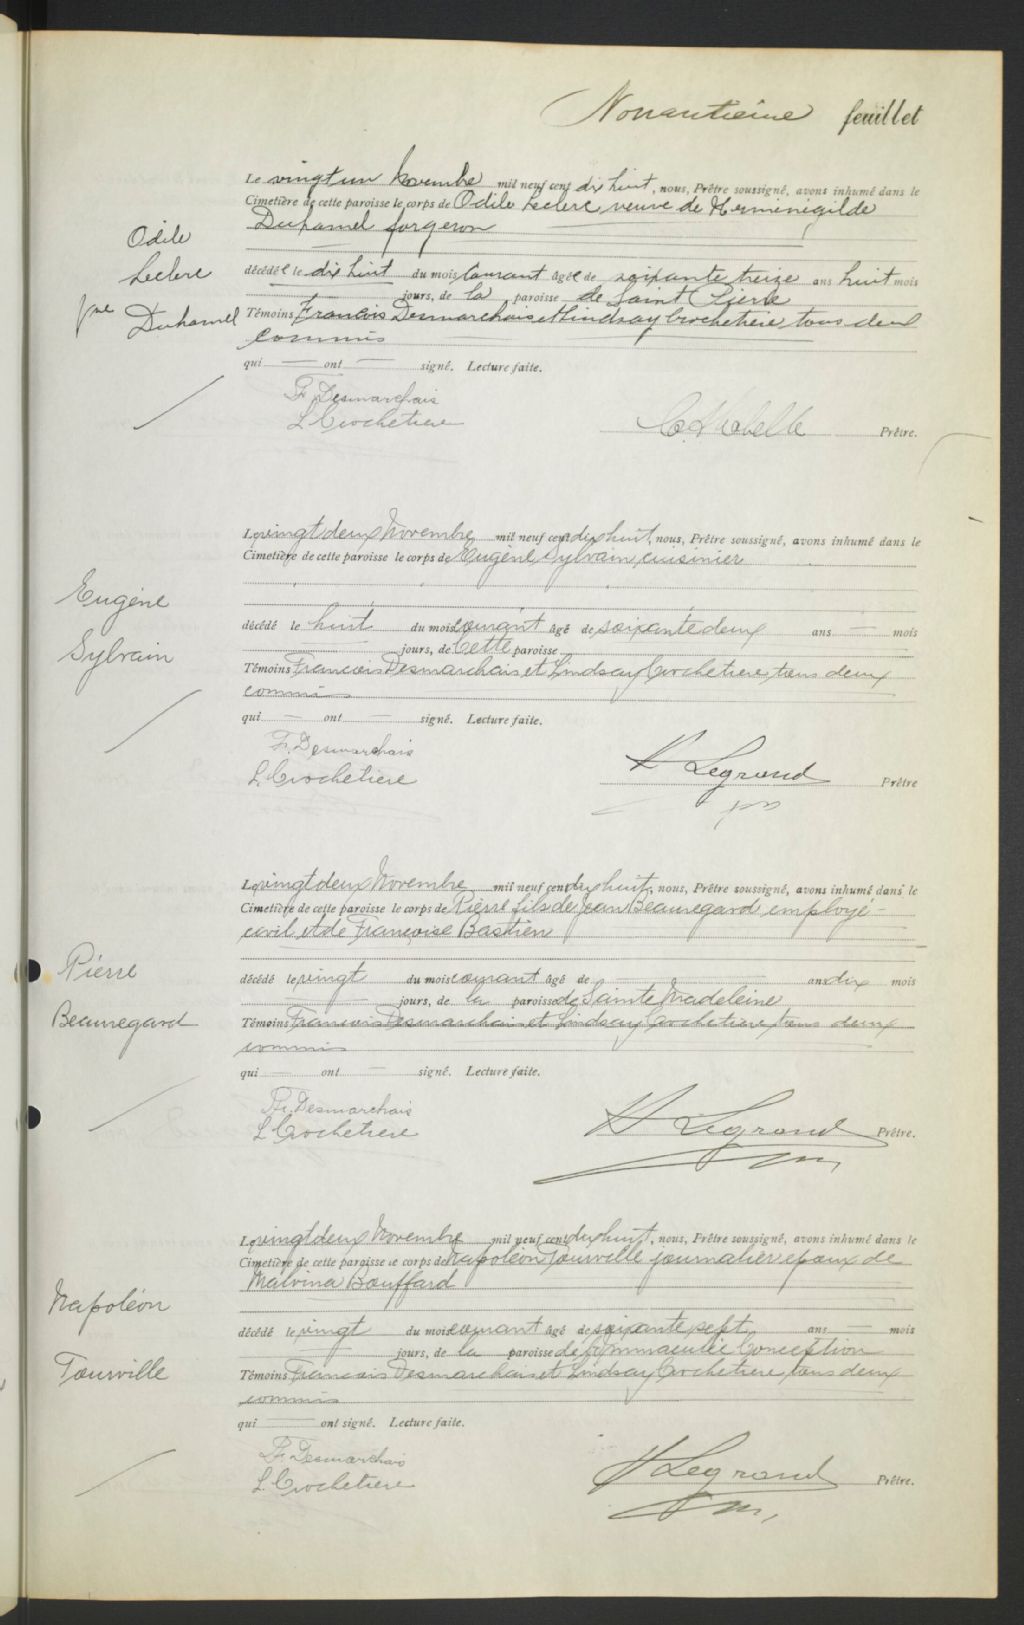 Nonantième feuillet
Le vingt un Novembre mil neuf cent dix huit, nous, Prêtre soussigné, avons inhumé dans le
Cimetière de cette paroisse le corps de Odile Leclerc, veuve de Herménégilde
Duhamel forgeron
Odile
Leclerc
Vve
Duhamel
décédée le dix huit du mois courant âgée de soixante treize ans huit mois
jours, de la paroisse de Saint Pierre
Témoins Francois Desmarchais et Lindsay Crochetiere tous deux
commis
qui — ont — signé. Lecture faite.
F. Desmarchais
L Crochetiere
Prêtre.
Le vingt deux Novembre mil neuf cent dix huit, nous, Prêtre soussigné, avons inhumé dans le
Cimetière de cette paroisse le corps de Eugène Sylvain cuisinier
Eugène
Sylvain
décédé le huit du mois courant âgé de soixante deux ans — mois
jours, de Cette paroisse
Témoins Francois Desmarchais et Lindsay Crochetiere, tous deux
commis
qui — ont — signé. Lecture faite.
F. Desmarchais
L. Crochetiere
H Legrand Prêtre
Le vingt deux Novembre mil neuf cent dix huit, nous, Prêtre soussigné, avons inhumé dans le
Cimetière de cette paroisse le corps de Pierre fils de Jean Beauregard employé
civil et de Francoise Bastien
Pierre
Beauregard
décédé le vingt du mois courant âgé de ans dix mois
jours, de la paroisse de Sainte Madeleine
Témoins Francois Desmarchais et Lindsay Crochetiere, tous deux
commis
qui — ont — signé. Lecture faite.
Fr. Desmarchais
L Crochetiere
H Legrand Prêtre.
Le vingt deux Novembre mil neuf cent dix huit, nous, Prêtre soussigné, avons inhumé dans le
Cimetière de cette paroisse le corps de Napoléon Tourville journalier epoux de
Malvina Bouffard
Napoléon
Tourville
décédé le vingt du mois courant âgé de soixante sept ans — mois
jours, de la paroisse de Immaculée Conception
Témoins Francois Desmarchais et Lindsay Crochetiere, tous deux
commis
qui — ont signé. Lecture faite.
Fr. Desmarchais
L. Crochetiere
H Legrand Prêtre.